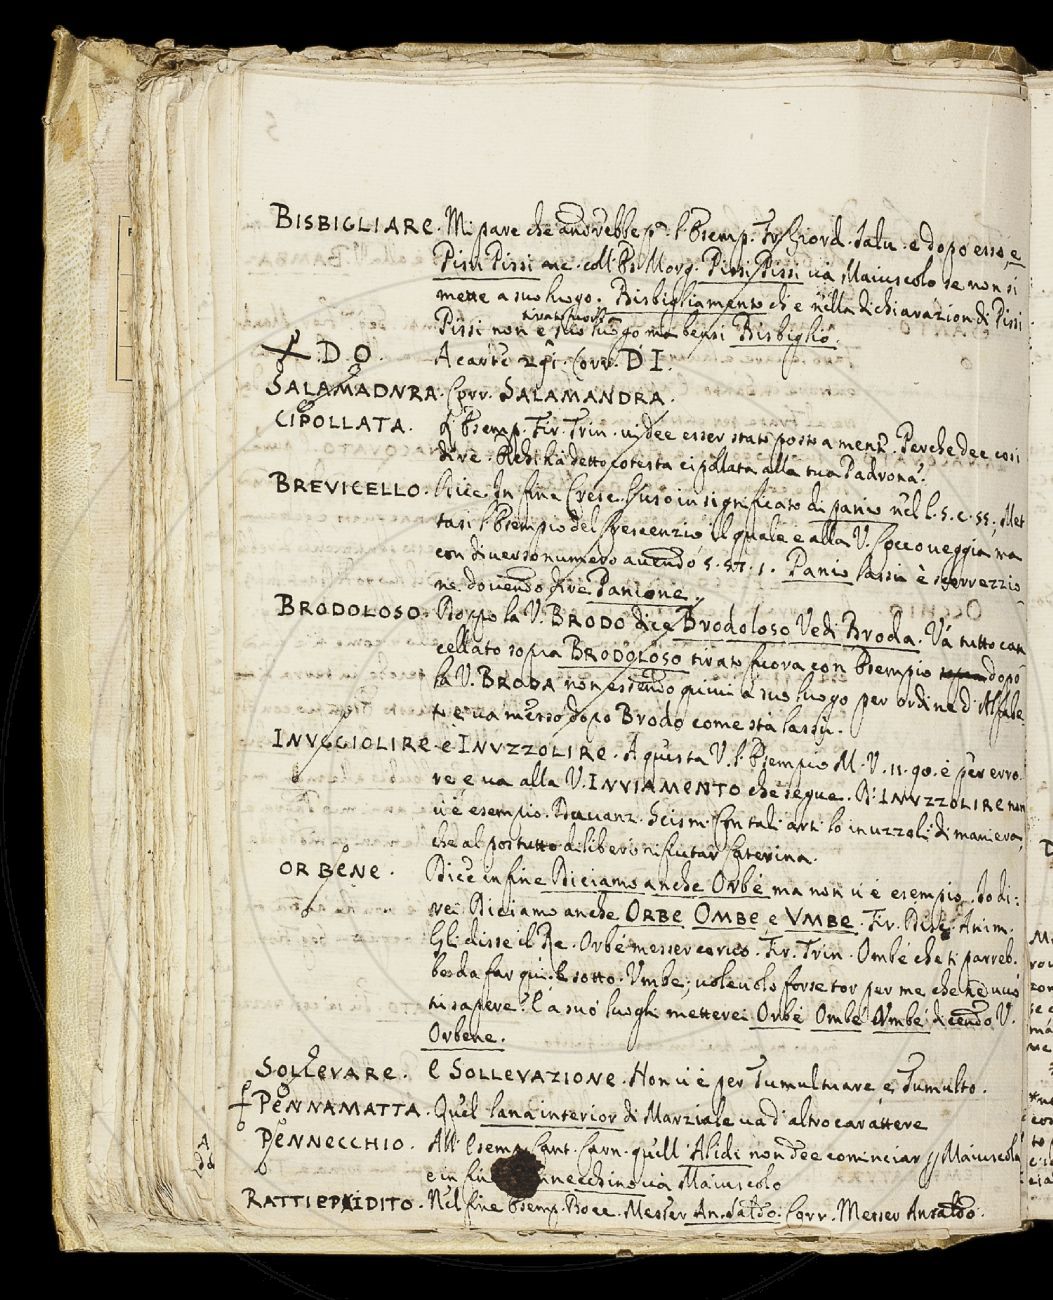 BISBIGLIARE. Mi pare che andrebbe pª. l'Esemp. Fr. Giord. Salu. e dopo esso, e
Pissi Pissi me. coll'Es. Morg. Pissi Pissi uà Maiuscolo se non si
mette a suo luogo. Bisbigliamento ch'è nella dichiarazion di Pissi
tirato fuora
Pissi non è suo luogo ma bensi Bisbiglio.
D O. A carte 291. Corr. D I.
SALAMADNRA. Corr. SALAMANDRA.
CIPOLLATA. L'Esemp. Fir. Trin. ui dee esser stato posto a menᵗᵉ. Perche dee cosi
dire. Chi ti hà detto cotesta cipollata alla tua Padrona?
BREVICELLO. Dice. In fine Cresc. L'usò in significato di panio nel l. 5. c. 55. Met
tasi l'Esempio del Crescenzio il quale è alla V. Coccoueggia, ma
con diuerso numero auendo 5. 57. 1. Panio lassù è scorrezzio
ne douendo dire Panione.
BRODOLOSO. Doppo la V. BRODO dice Brodoloso Vedi Broda. Và tutto can
cellato sopra BRODOLOSO tirato fuora con Esempio dopo
la V. BRODA non essendo quiui a suo luogo per ordine d'Alfabe
to e ua messo dopo Brodo come sta lassù.
INVGGIOLIRE e INVZZOLIRE. A questa V. l'Esempio M. V. 11. 90. è per erro
re, e ua alla V. INVIAMENTO che segue. D'INVZZOLIRE non
u'è esempio. Dauanz. Scism. Con tali arti lo inuzzolì di maniera,
che al postutto diliberò rifiutar Caterina.
ORBENE. Dice in fine Diciamo anche Orbè ma non u'è esempio. Io di:
rei. Diciamo anche ORBE OMBE e VMBE. Fir. Disc. Anim.
Gli disse il Re. Orbè messer corvo. Fir. Trin. Ombè che ti parreb.
be da far qui. E sotto. Vmbè, uolevolo forse tor per me che ne vuoi
tu sapere? E a suoi luoghi metterei Orbè Ombè Vmbè dicendo V.
Orbene.
SOLLEVARE. e SOLLEVAZIONE. Non u'è per Tumultuare, e Tumulto.
PENNAMATTA. Quel lana interior di Marziale ua d'altro carattere
PENNECCHIO. All'Esemp. Cant. Carn. quell'Alidi non dee cominciar p Maiuscola
A
dd
e in fine nnecchino uà Maiuscolo
RATTIEPIDITO. Nel fine Esemp. Bocc. Messer An. saldo. Corr. Messer Ansaldo.